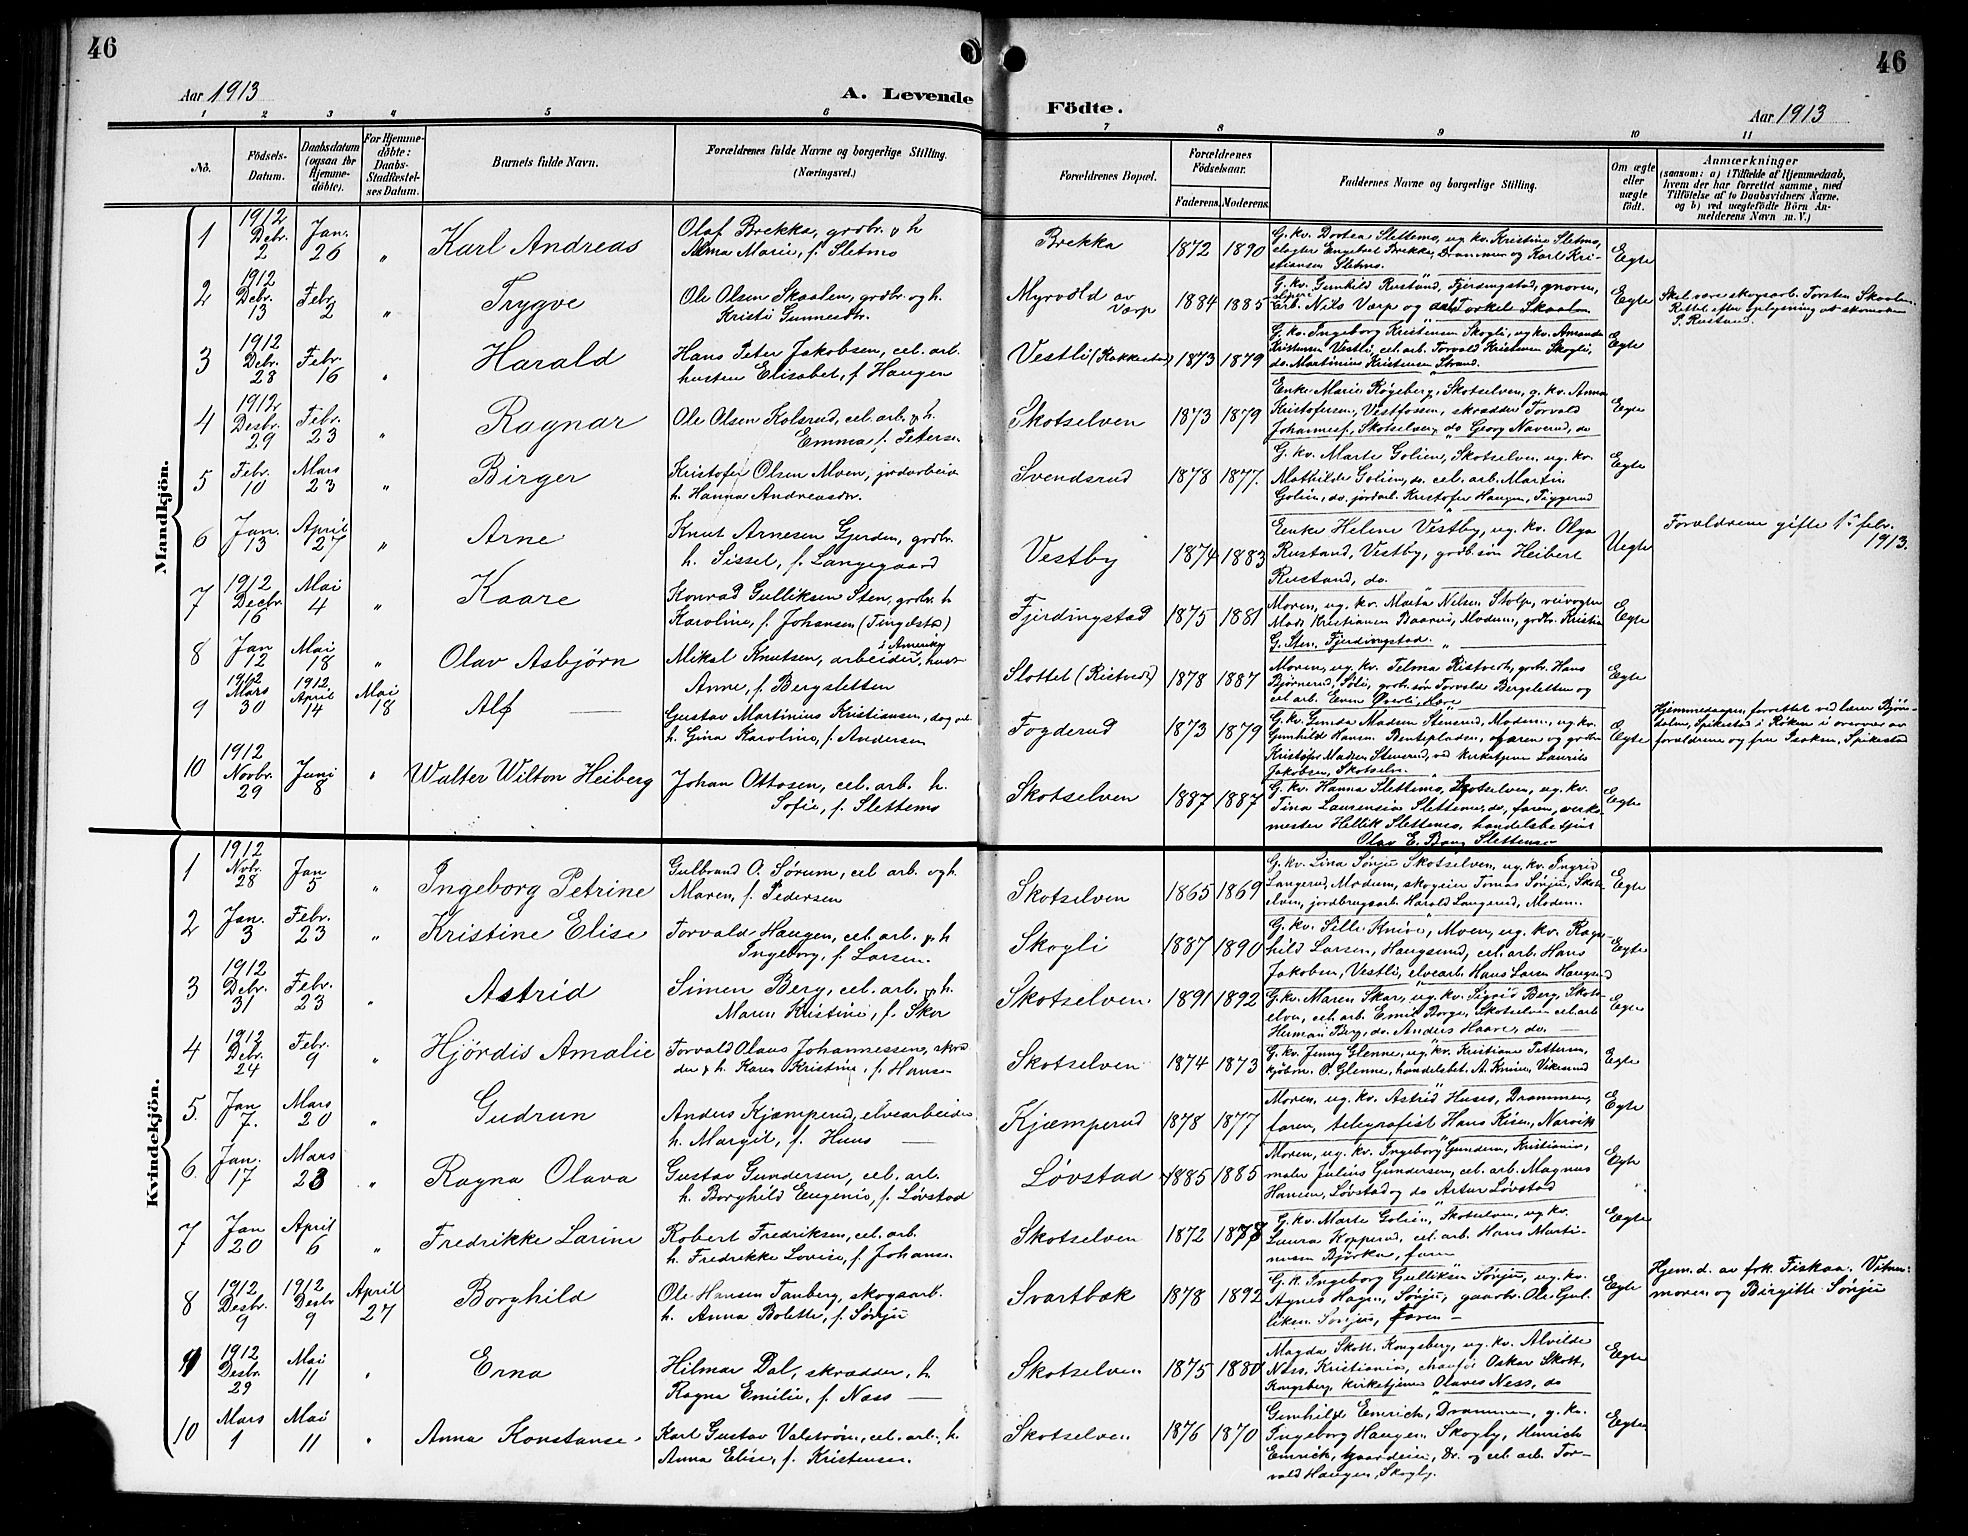 46
46
Aar 1913
A. Levende
Födte.
Aar 1913
1 2 3 4 5 6 7 8 9 10 11
No.
Födsels-
Datum.
Daabsdatum
(ogsaa for
Hjemme-
döbte).
For Hjemme-
döbte:
Daabs-
Stadfæstel-
ses Datum.
Barnets fulde Navn.
Forældrenes fulde Navne og borgerlige Stilling.
(Næringsvei.)
Forældrenes Bopæl.
Forældrenes
Födselsaar.
Faderens. Moderens.
Faddernes Navne og borgerlige Stilling.
Om ægte
eller
uægte
födt.
Anmærkninger
(saasom: a) i Tilfælde af Hjemmedaab,
hvem der har forrettet samme, med
Tilföielse af to Daabsvidners Navne,
og b) ved uægtefödte Börn An-
melderens Navn m. V.)
Mandkjön.
1
1912
Debr.
2
Jan.
26
"
Karl Andreas
Olaf Brekka, grdbr. & h
Anna Marie, f. Sletmo
Brekka
1872 1890
G. kv. Dortea Slettemo, ug. kv. Kristine Sletmo,
Engebret Brekke, Drammen og Karl Kri-
stiansen Sletmo.
Egte
2
1912
Debr.
13
Febr
2
"
Trygve
Ole Olsen Skaalen, grdbr. og h.
Kristi Gunnesdtr.
Myrvold av
Varp
1884 1885
G. kv. Gunhild Rustand, Fjerdingstad, gmoren,
Nils Varp og Torkel Skaalen
Egte
Skal være skogsarb. Torsten Skaalen.
Rettet efter oplysning av skomaker
P. Rustand.
3
1912
Debr.
28
Febr.
16
"
Harald
Hans Peter Jakobsen, cel. arb.
hustru Elisabet, f. Haugen
Vestli (Rakkestad)
1873 1879
G. kv. Ingeborg Kristensen Skogli, ug. kv. Amanda
Kristensen Vestli, cel. arb. Torvald Kristensen Skogli,
do. Martinius Kristensen Strand.
Egte
4
1912
Desbr.
29
Febr.
23
"
Ragnar
Ole Olsen Kolsrud, cel. arb. & h.
Emma f. Peterse.
Skotselven
1873 1879
Enke Marie Røgeberg, Skotselven, g. kv. Anna
Kristofersen, Vestfossen, skrædder Torvald
Johannesf., Skotselven, do Georg Naverud, do
Egte
5
Febr.
10
Mars
23
"
Birger
Kristofer Olsen Moen, jordarbeid
h. Hanna Andreasdtr.
Svendsrud
1878 1877.
G. kv. Marte Golien, Skotselven, ug. kv.
Mathilde Golien, do. cel. arb. Martin
Golien, do. jordarb. Kristofer Haugen, Tiggerud
Egte
6
Jan.
13
April
27
"
Arne
Knut Arnesen Gjerden, grdbr.
h. Sissel, f. Langegaard
Vestby
1874 1883
Enke Helene Vestby, ug. kv. Olga
Rustand, Vestby, grdb. søn Heibert
Rustand, do.
Uegte
Forældrene gifte 1ste febr.
1913.
7
1912
Decbr.
16
Mai
4
"
Kaare
Konrad Gulliksen Sten, grdbr. h
Karoline, f. Johansen (Tingelstø)
Fjerdingstad
1875 1881
Moren, ug. kv. Marta Nilsen Stolp, veivogter
Mads Kristiansen Baarud, Modum, grdbr. Kristian
G. Sten, Fjerdingstad.
Egte
8
Jan
12
Mai
18
"
Olav Asbjørn
Mikal Knutsen, arbeider i Amerika, hustr.
Anne, f. Bergsletten
Slottet (Ristvedt)
1878 1887
Moren, ug. kv. Telma Ristvedt, grbr. Hans
Bjørnerud, Søli, grdb. søn Torvald Bergsletten og
cel arb. Even Øverli, Hære
Egte
9
1912
Mars
30
1912
April
14
Mai
18
Alf
Gustav Martinius Kristiansen, dag arb.
h. Gina Karoline, f. Andersen
Fogderud
1873 1879
G. kv. Gunda Madsen Stensrud, Modum, ug. kv.
Gunhilde Hansen Bentepladsen, faren og grdbr
Kristofer Madsen Stensrud, ved kirketjener Laurits
Jakobsen, Skotselv.
Egte
Hjemmedaapen forrettet ved lærer Bjøn-
dalen, Spikestad i Røken i overvær av
forældrene og fru Isaksen, Spikestad
10
1912
Novbr.
29
Juni
8
"
Walter Wilton Heiberg
Johan Ottosen, cel. arb. h.
Sofie, f. Slettemo
Skotselven
1887 1887
G. kv. Hanna Slettemo, Skotselven, ug. kv.
Tina Laurensia Slettemo, do, faren, verks-
mester Hellik Slettemo, handelsbetjent
Olav E. Bang Slettemo
Egte
Kvindekjön.
1
1912
Nvbr.
28
Jan
5
"
Ingeborg Petrine
Gulbrand O. Sørum, cel arb. og h.
Maren, f. Pedersen
Skotselven
1865 1869
G. kv. Lina Sønju Skotselven, ug. kv. Ingrid
Langerud, Modum, skogeier Tomas Sønju, Skots-
elven, jordbrugsarb. Harald Langerud, Modum.
Egte
2
Jan.
3
Febr.
23
"
Kristine Elise
Torvald Haugen, cel. arb. & h
Ingeborg, f. Larsen.
Skogli
1887 1890
G. kv. Sille Knive, Moen, ug. kv. Ragn-
hild Larsen, Haugsund, cel. arb. Hans
Jakobsen, Vestli, elvearb. Hans Larsen Haugsund
Egte
3
1912
Debr.
31
Febr.
23
"
Astrid
Simen Berg, cel. arb. & h.
Maren Kristine, f. Skar
Skotselven.
1891 1892
G. kv. Maren Skar, ug. kv. Sigrid Berg, Skots-
elven, cel. arb. Emil Borge, Skotselven cel. arb
Herman Berg, do. Anders Haare, do.
Egte
4
1912
Debr.
24
Febr.
9
"
Hjørdis Amalie
Torvald Olaus Johannessen, skræ
der & h. Karen Kristine, f. Hanse-
Skotselven
1874 1873
G. kv. Jenny Glenne, ug. kv. Kristiane Pettersen,
kjøbm. O. Glenne, handelsbet. A. Knive, Vikesund
Egte
5.
Jan
7.
Mars
20
"
Gudrun
Anders Kjæmperud, elvearbeider
h. Margit, f. Huns
Kjæmperud
1878 1877
Moren, ug. kv. Astrid Huses, Drammen,
faren, telegrafist Hans Risen, Narvik
Egte
6
Jan.
17
Mars
23
"
Ragna Olava
Gustav Gundersen, cel. arb.
h. Borghild Eugenie, f. Løvstad
Løvstad
1885 1885
Moren, ug. kv. Ingeborg Gundersen, Kristiania,
maler Julius Gundersen, cel. arb. Magnus
Hansen, Løvstad og do Artur Løvstad
Egte
7
Jan
20
April
6
"
Fredrikke Larine
Robert Fredriksen, cel. arb.
h. Fredrikke Lovise, f. Johans.
Skotselven
1872 1878
G. kv. Marte Golien, Skotselven, ug kv.
Laura Kopperud, cel. arb. Hans Marti-
nusen Björka, faren
Egte
8
1912
Desbr.
9
1912
Desbr
9
April
27
Borghild
Ole Hansen Tanberg, skogsarb.
h. Anna Bolette, f. Sönju
Svartbæk
1878 1892
G. k. Ingeborg Gulliksen Sönju, ug. kv.
Agnes Hagen, Sönju, gaardbr. Ole Gul-
liksen Sönju, faren -
Egte
Hjem. d. av frk. Fiskaa. Vitner:
moren og Birgitte Sønju
9
1912
Desbr.
29
Mai
11
"
Erna
Hilmar Dal, skrædder, h.
Ragna Emilie, f. Næss
Skotselven
1875 1880
Magda Skott, Kongsberg, ug. kv. Alvilde
Næss, Kristiania, chauffør Oskar Skott,
Kongsberg, kirketjener Olaves Ness, do
Egte
10
Mars
1
Mai
11
"
Anna Konstanse
Karl Gustav Valstrøm, cel. arb., h.
Anna Elise, f. Kristensen.
Skotselven
1876 1870
Gunhild Emrich, Drammen, g. kv.
Ingeborg Haugen Skogly, Hinrich
Emrich, gaardeier, Dr. og cel. arb. Tor-
vald Haugen, Skogly.
Egte